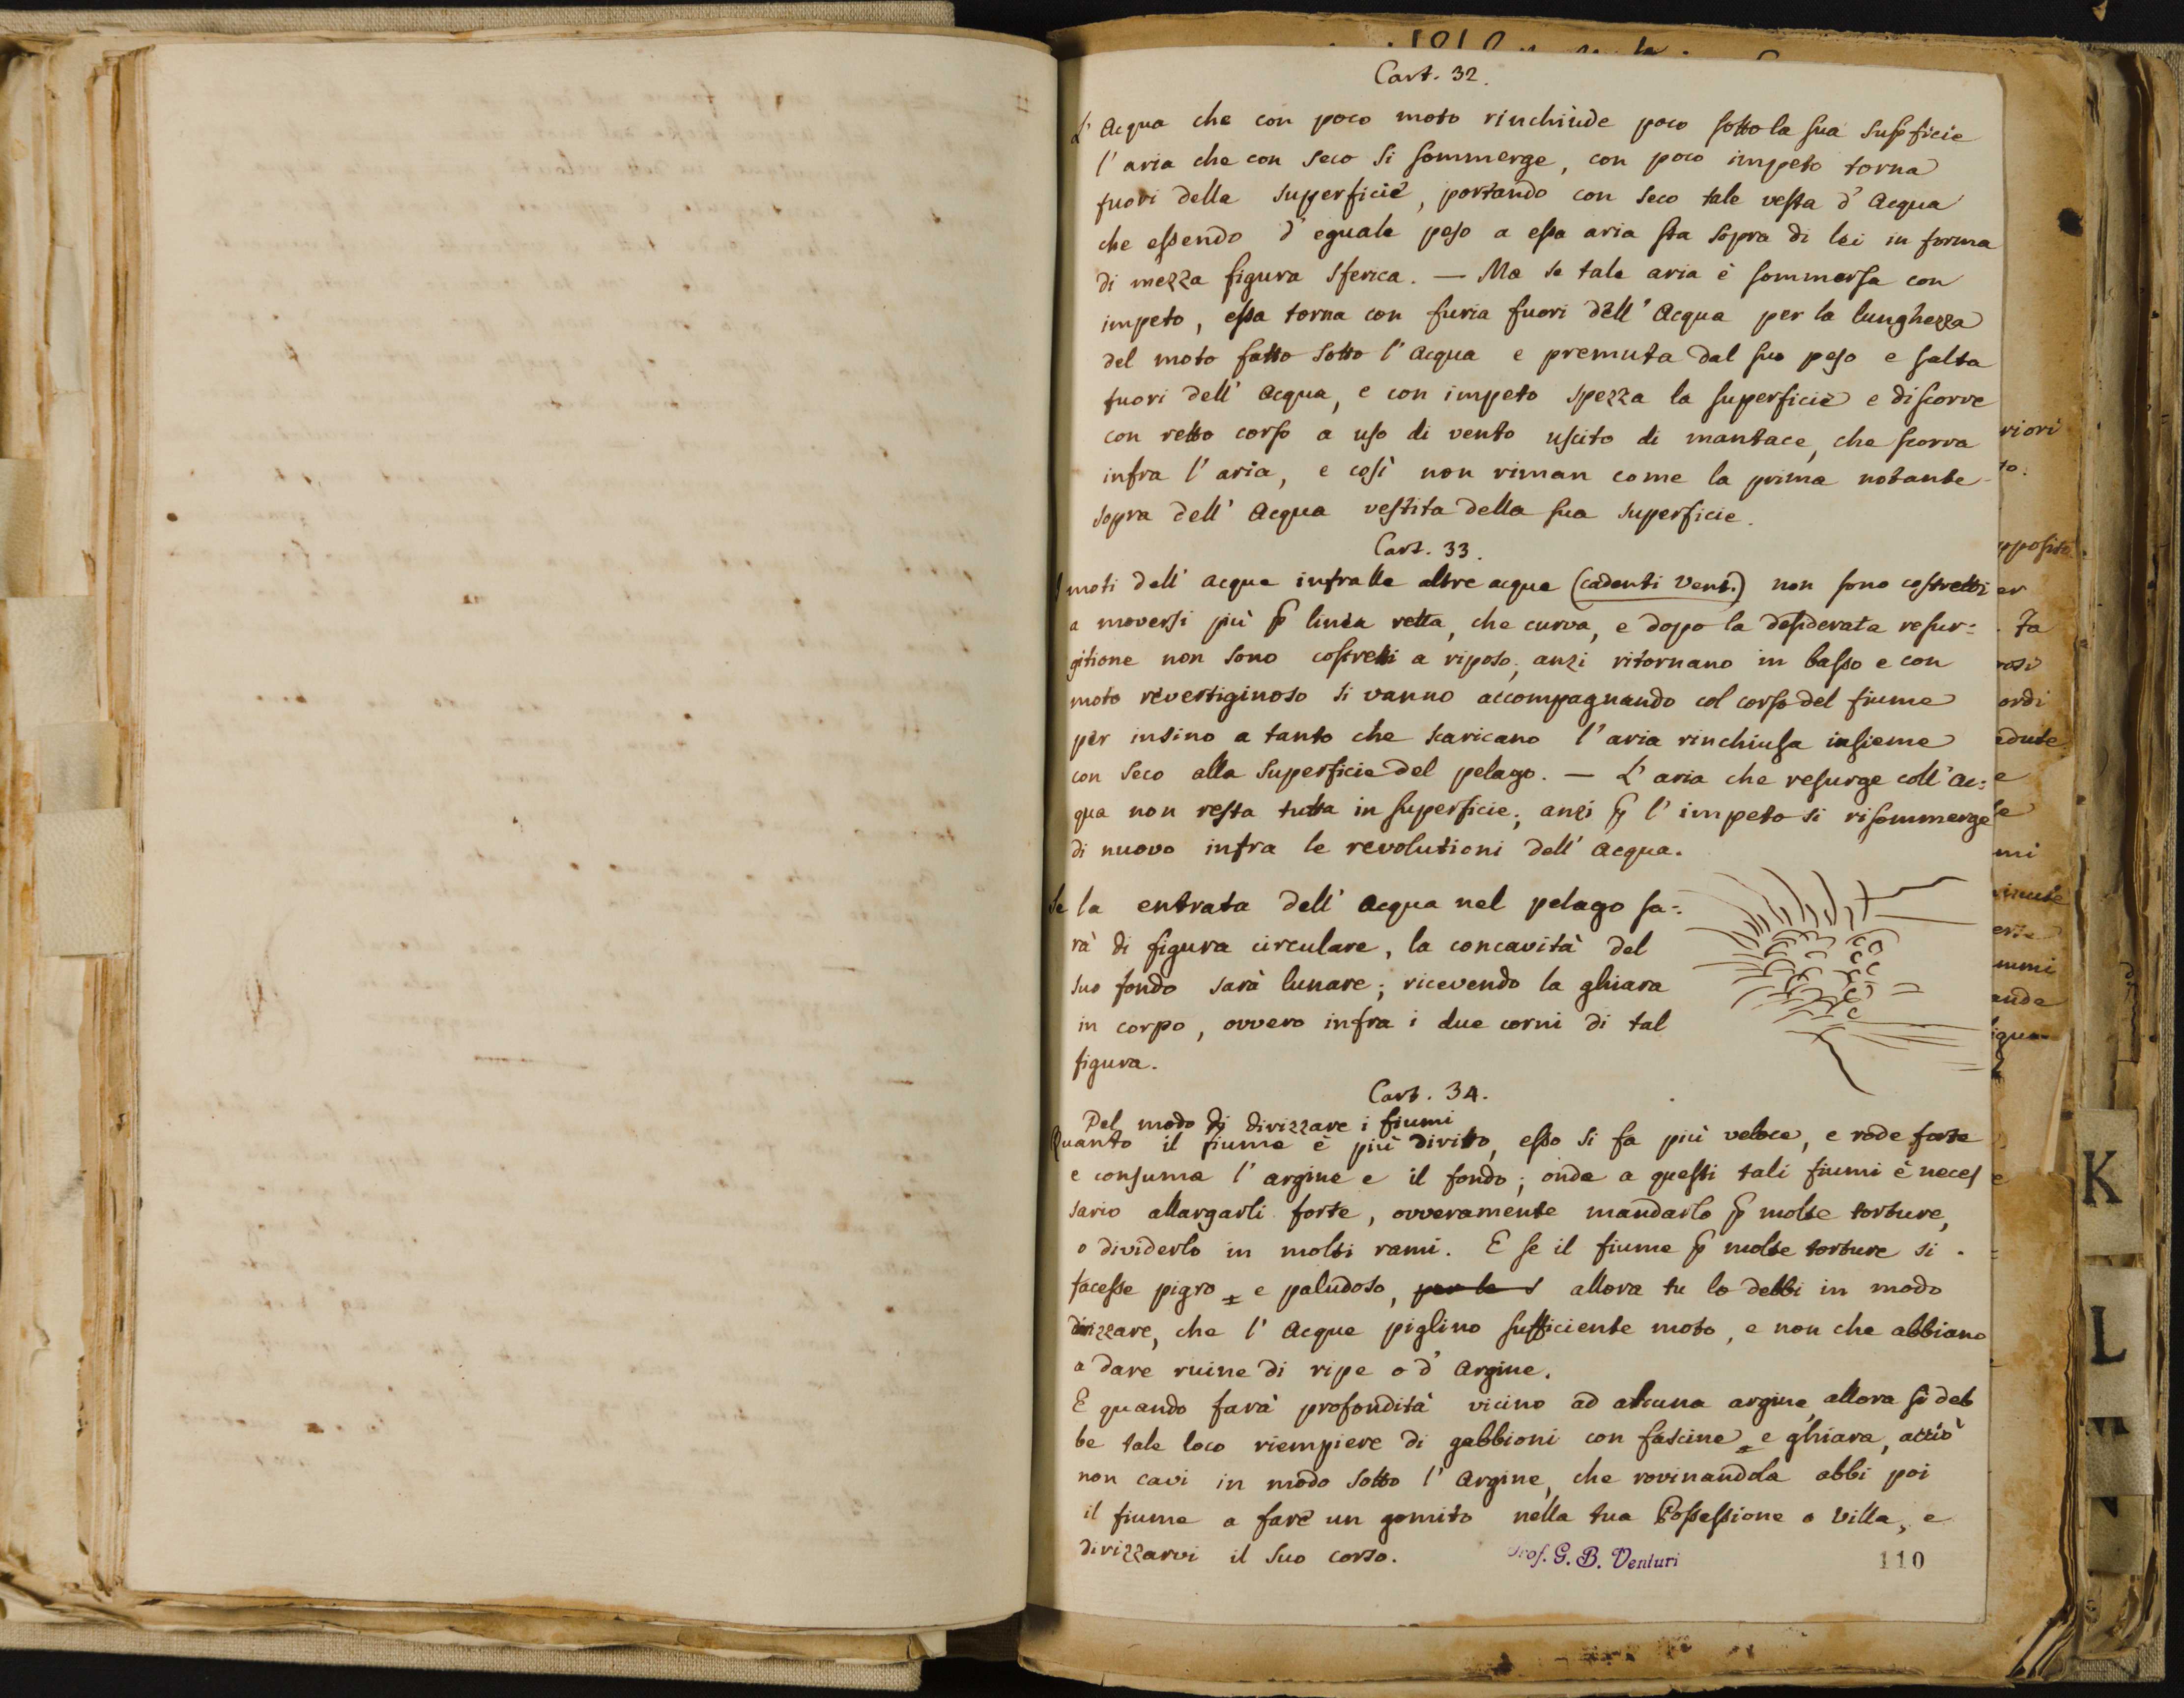 Cart. 32.
L' Acqua che con poco moto rinchiude poco sotto la sua Supficie
l' aria che con seco si sommerge, con poco impeto torna
fuori della superficie, portando con seco tale vesta d' Acqua
che essendo d' eguale peso a essa aria sta sopra di lei in forma
di mezza figura sferica. — Ma se tale aria è sommersa con
impeto, essa torna con furia fuori dell' Acqua per la lunghezza
del moto fatto sotto l' Acqua e premuta dal suo peso e salta
fuori dell' Acqua, e con impeto spezza la superficie e discorre
con retto corso a uso di vento uscito di mantace, che scorra
infra l' aria, e così non riman come la prima notante
sopra dell' Acqua vestita della sua superficie.
Cart. 33.
I moti dell' acque infralle altre acque (cadenti Vent.) non sono costretti
a moversi più p linea retta, che curva, e dopo la desiderata resur=
gitione non sono costretti a riposo; anzi ritornano in basso e con
moto revertiginoso si vanno accompagnando col corso del fiume
per insino a tanto che scaricano l' aria rinchiusa insieme
con seco alla superficie del pelago. — L' aria che resurge coll' Ac=
qua non resta tutta in superficie; anzi p l' impeto si risommerge
di nuovo infra le revolutioni dell' Acqua.
Se la entrata dell' Acqua nel pelago sa=
rà di figura circulare, la concavità del
suo fondo sarà lunare; ricevendo la ghiara
in corpo, ovvero infra i due corni di tal
figura.
Cart. 34.
Del modo di dirizzare i fiumi
Quanto il fiume è più diritto, esso si fa più veloce, e rode forte
e consuma l' argine e il fondo; onde a questi tali fiumi è neces
sario allargarli forte, ovveramente mandarlo p molte torture,
o dividerlo in molti rami. E se il fiume p molte torture si
facesse pigro e paludoso, per le s allora tu lo debbi in modo
dirizzare, che l' Acque piglino sufficiente moto, e non che abbiano
a dare ruine di ripe o d' Argine.
E quando farà profondità vicino ad alcuna argine, allora si deb
be tale loco riempiere di gabbioni con fascine e ghiara, acciò
non cavi in modo sotto l' Argine, che rovinandola abbi poi
il fiume a fare un gomito nella tua Possessione o Villa, e
dirizzarvi il suo corso.
Prof. G. B. Venturi
110
K
L